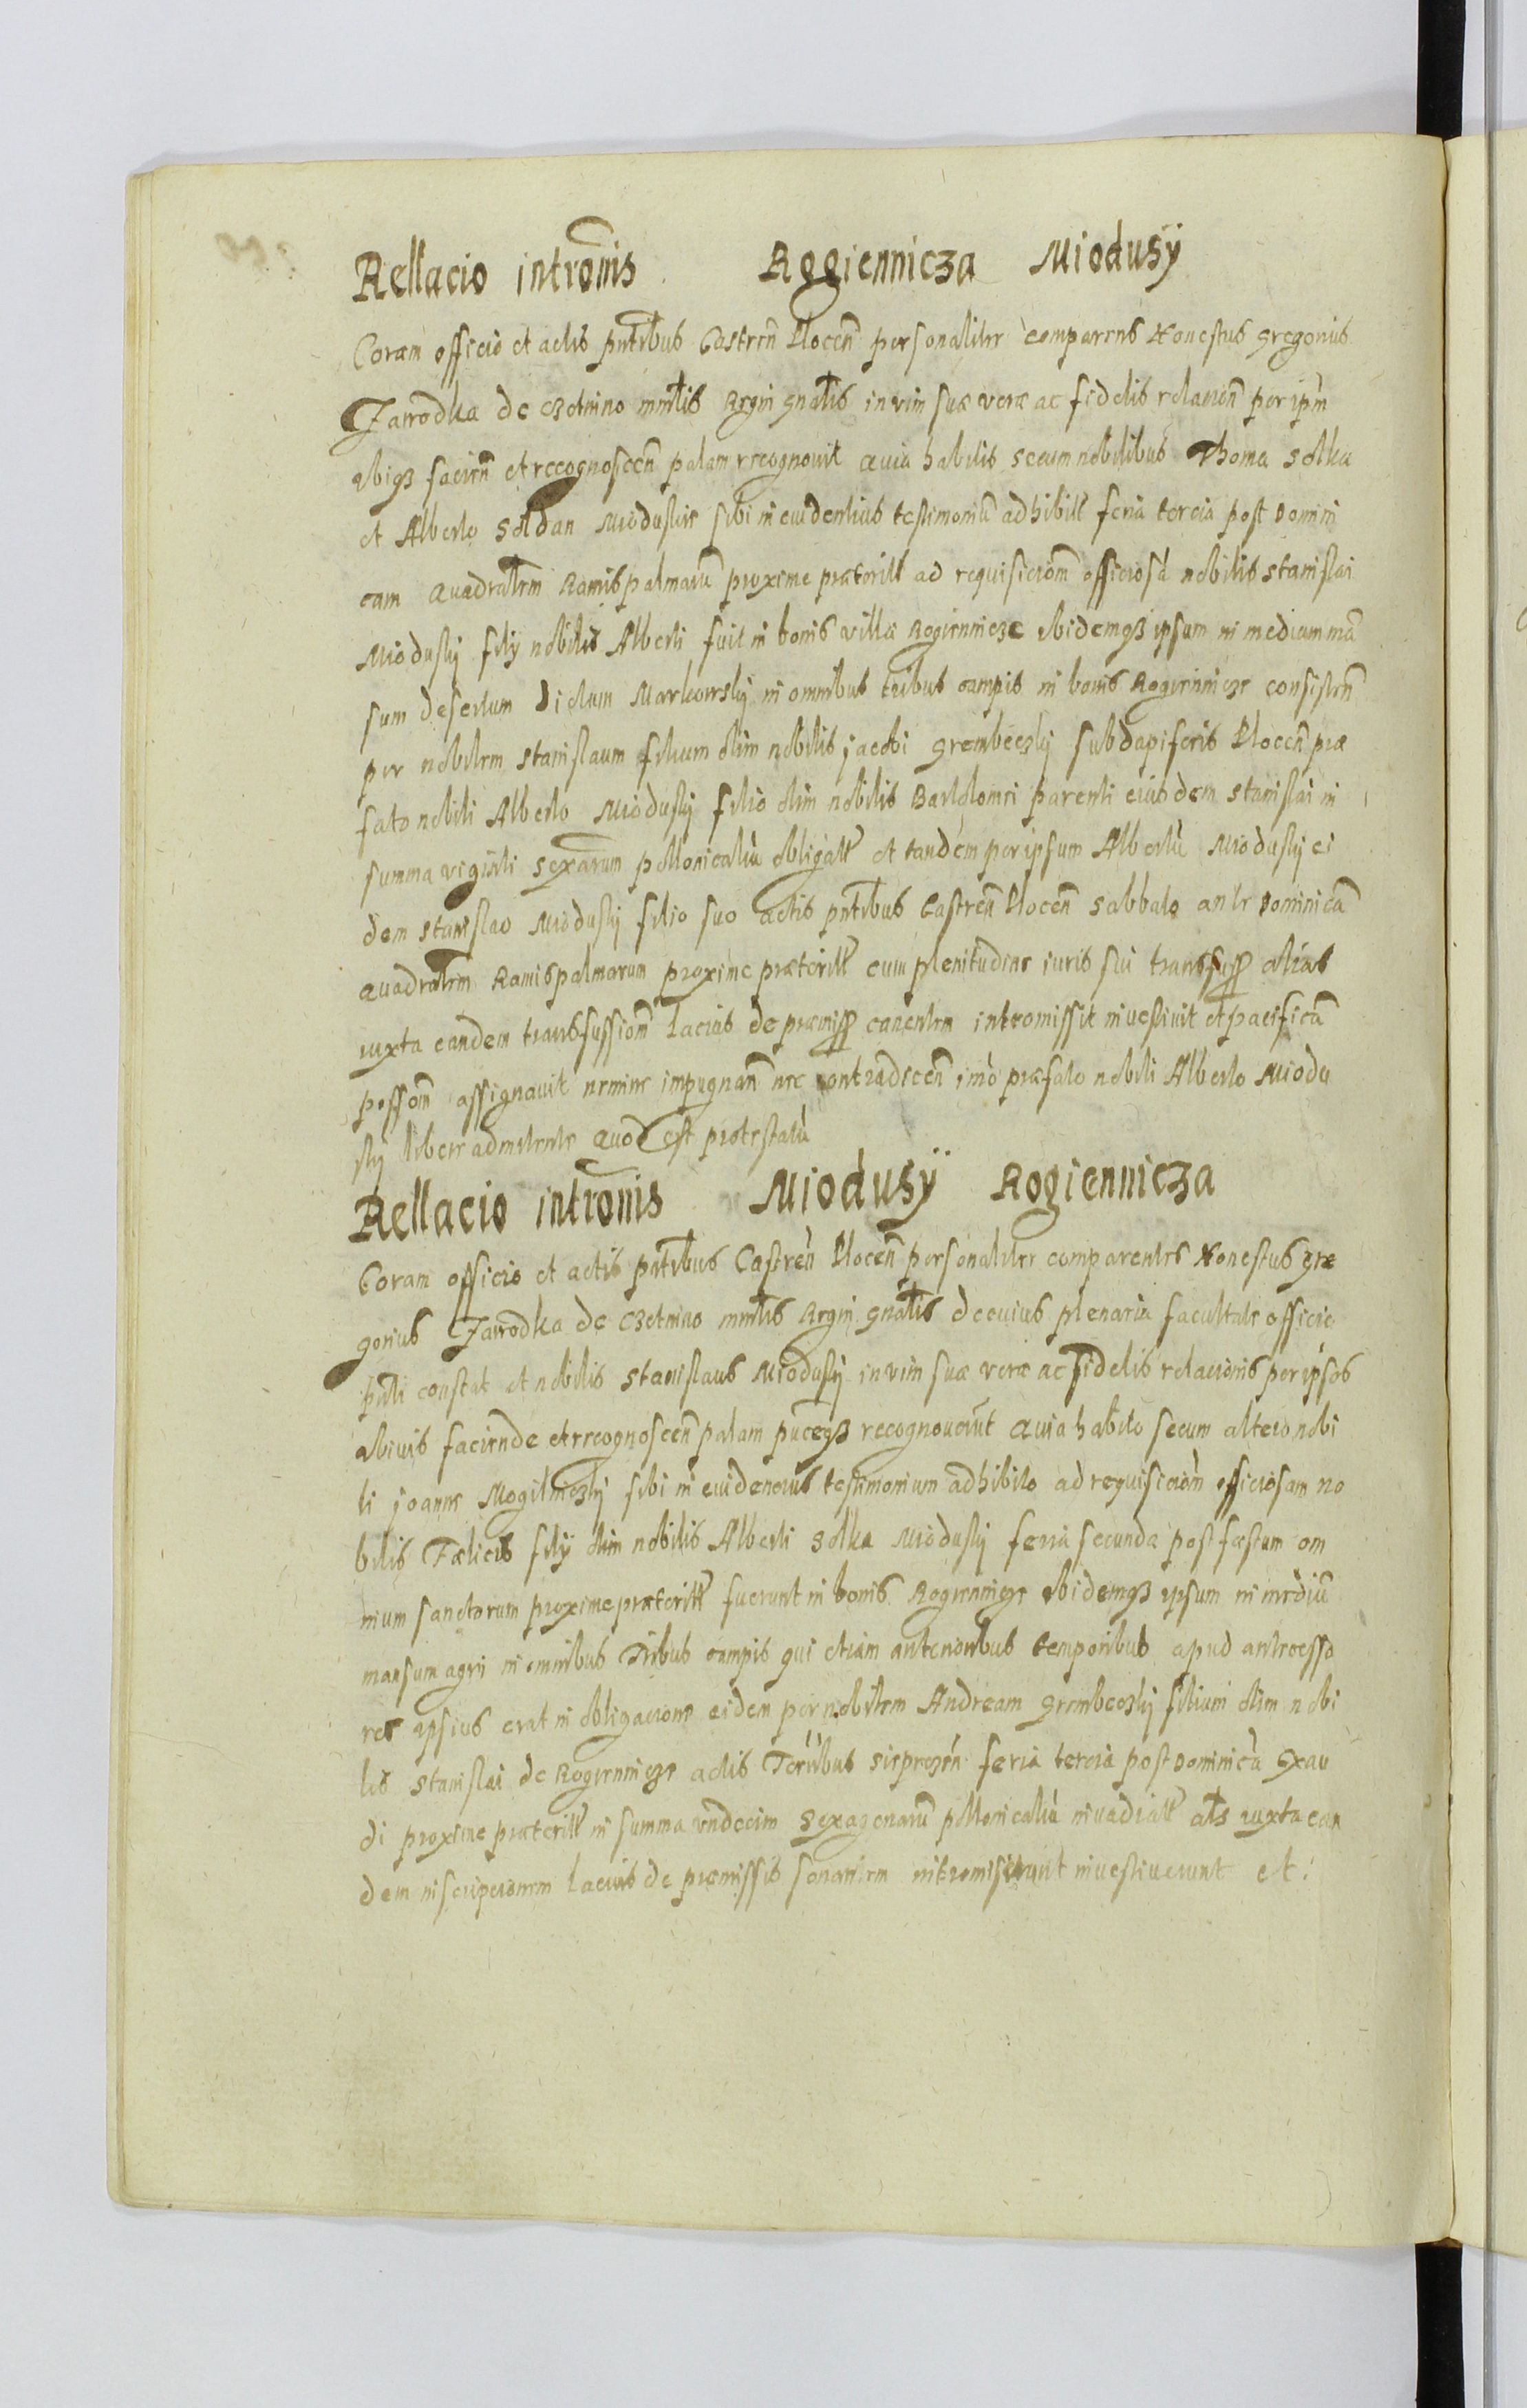 Rellacio intromis Rogiennicza Miodusÿ
Coram officio et actis pntibus Castren Plocen personaliter comparens Honestus Gregorius
Jarrodka de Czotnino mnrlis Regni gnalis in vim suæ veræ ac fidelis relacion per ipm
ibiqz facien et recognoscen palam recognouit Quia habitis secum nobilibus Thoma Solka
et Alberto Soldan Mioduskie sibi in euidentius testimoniu adhibitt feria tercia post Domini
cam Quadratrm Ramispalmaru proxime præteritt ad requisiciom officiosa nobilis Stanislai
Miodusky filÿ nobilis Alberti fuit in bonis villæ Rogiennicze ibidemqz ipsum in medium ma
sum desertum dictum Markowsky in omnibus tribus campis in bonis Rogiennicze consisten
per nobilem Stanislaum filium olim nobilis Jacobi Grembeczky subdapiferis Plocen præ
fato nobili Alberto Miodusky filio olim nobilis Bartolomei parenti eiusdem Stanislai in
summa viginti sexarum pollonicaliu obligatt et tandem per ipsum Albertu Miodusky ei
dem Stanislao Miodusky filio suo actis pntibus Castren Plocen Sabbato ante Dominica
Quadratrm Ramispalmarum proxime præteritt cum plenitudine iuris sui transfuss alias
iuxta eandem transfussiom lacius de præmiss canentem intromissit inuestiuit et pacifica
possom assignauit nemine impugnan nec contradicen imo præfato nobili Alberto Miodu
sky libere admittente Quod est protestatu
Rellacio intromis Miodusÿ Rogiennicza
Coram officio et actis pntibus Castren Plocen personaliter comparentes Honestus Gre
gorius Jarrodka de Czotnino mnrlis Regni gnalis de cuius plenaria facultate officio
pnti constat et nobilis Stanislaus Miodusky in vim suæ veræ ac fidelis relacionis per ipsos
ibiuis faciende et recognoscen palam pnceqz recognouerut Quia habito secum altero nobi
li Joanne Mogilniczky sibi in euidencius testimonium adhibito ad requisiciom officiosam no
bilis Fælicis filÿ olim nobilis Alberti Solka Miodusky feria secunda post festum om
nium sanctorum proxime præteritt fuerunt in bonis Rogiennicze ibidemqz ipsum in mediu
mansum agri in omnibus tribus campis qui etiam anterioribus temporibus apud antecesso
res ipsius erat in obligacione eidem per nobilem Andream Grembeczky filium olim nobi
lis Stanislai de Rogiennicze actis Terribus Sieprczen feria tercia post Dominica Exau
di proxime præteritt in summa vndecim sexagenaru pollonicaliu inuadiatt als iuxta ean
dem inscripcionem lacius de præmissis sonantem intromiserunt inuestiuerunt et